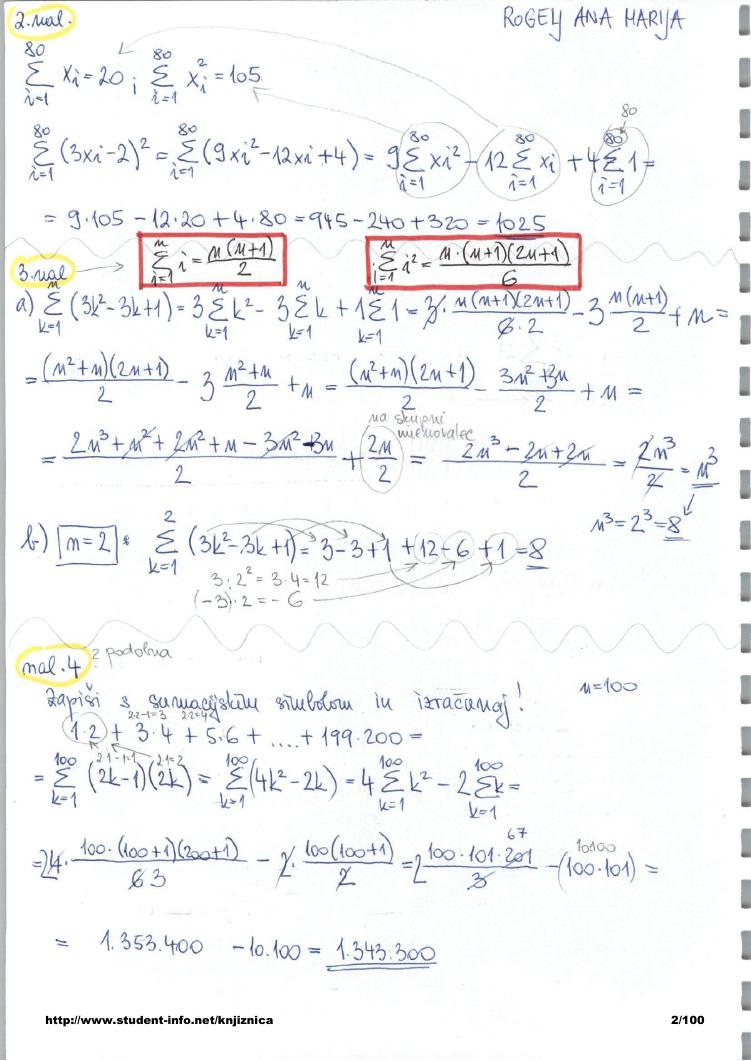 2. nal. ROGELJ ANA MARIJA
80 ∑ i=1 xi = 20 ; 80 ∑ i=1 xi² = 105
80
80 ∑ i=1 (3xi-2)² = 80 ∑ i=1 (9xi²-12xi+4) = 9 80 ∑ i=1 xi² - 12 80 ∑ i=1 xi + 4 80 ∑ i=1 1 =
= 9·105 - 12·20 + 4·80 = 945 - 240 + 320 = 1025
3. nal → n ∑ i=1 i = n(n+1)/2 n ∑ i=1 i² = n·(n+1)(2n+1)/6
a) n ∑ k=1 (3k²-3k+1) = 3 n ∑ k=1 k² - 3 n ∑ k=1 k + 1 n ∑ k=1 1 = 3· n(n+1)(2n+1)/6·2 - 3 n(n+1)/2 + n =
= (n²+n)(2n+1)/2 - 3 n²+n/2 + n = (n²+n)(2n+1)/2 - 3n²+3n/2 + n =
na skupni
imenovalec
= 2n³+n²+2n²+n-3n²-3n/2 + 2n/2 = 2n³-2n+2n/2 = 2n³/2 = n³
n³ = 2³ = 8
b) n=2 : 2 ∑ k=1 (3k²-3k+1) = 3-3+1 +12-6+1 = 8
3·2² = 3·4 = 12
(-3)·2 = -6
nal. 4 podobna
Zapiši s sumacijskim simbolom in izračunaj! n=100
2·2-1=3 2·2=4
1·2 + 3·4 + 5·6 + .... + 199·200 =
2·1-1=1 2·1=2
= 100 ∑ k=1 (2k-1)(2k) = 100 ∑ k=1 (4k²-2k) = 4 100 ∑ k=1 k² - 2 100 ∑ k=1 k =
67 10100
= 2 4· 100·(100+1)(200+1)/6 3 - 2· 100(100+1)/2 = 2 100·101·201/3 - (100·101) =
= 1.353.400 - 10.100 = 1.343.300
http://www.student-info.net/knjiznica 2/100